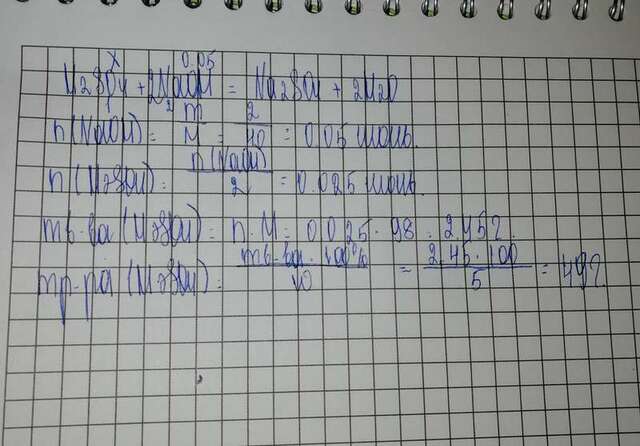 x 0.05
H2SO4 + 2NaOH = Na2SO4 + 2H2O
n(NaOH) = m/M = 2/40 = 0.05 моль.
n(H2SO4) = n(NaOH)/2 = 0.025 моль.
mв-ва (H2SO4) = n · M = 0.025 · 98 = 2.45г.
mр-ра (H2SO4) = mв-ва · 100%/W = 2.45 · 100/5 = 49г